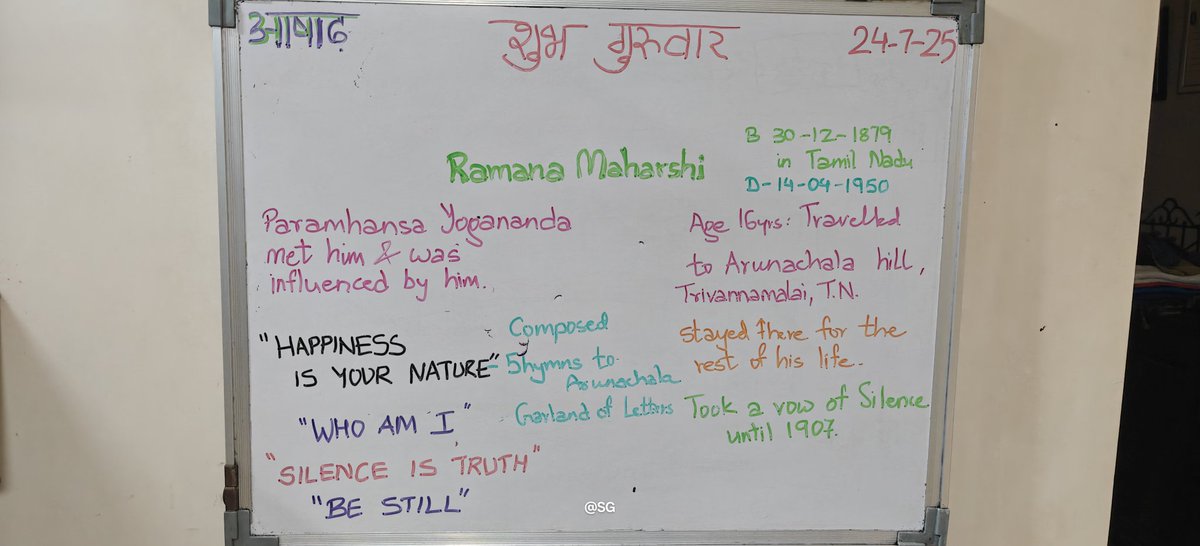 आषाढ़
शुभ गुरुवार
24-7-25
Ramana Maharshi
B 30-12-1879
in Tamil Nadu
D-14-04-1950
Paramhansa Yogananda
met him & was
influenced by him.
Age 16yrs: Travelled
to Arunachala hill,
Trivannamalai, T.N.
stayed there for the
rest of his life.
Took a vow of Silence
until 1907.
Composed
5 hymns to
Arunachala
Garland of Letters
"HAPPINESS
IS YOUR NATURE"
"WHO AM I"
"SILENCE IS TRUTH"
"BE STILL"
@SG